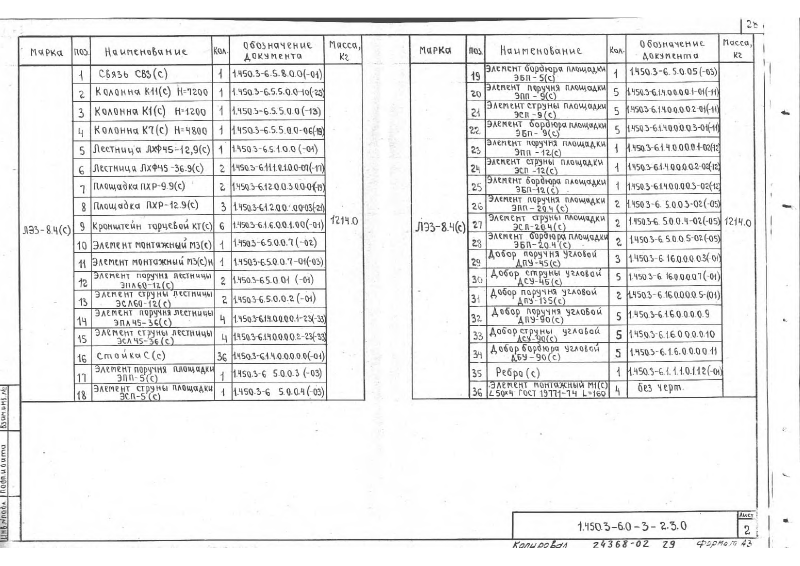 28
Марка поз. Наименование Кол. Обозначение документа Масса, кг
ЛЭЗ-8.4(с) 1214.0
1 Связь СВ3(с) 1 1.450.3-6.5.8.0.0(-01)
2 Колонна К11(с) Н=7200 1 1.450.3-6.5.5.0.0-10(-23)
3 Колонна К1(с) Н=1200 1 1.450.3-6.5.5.0.0(-13)
4 Колонна К7(с) Н=4800 1 1.450.3-6.5.5.0.0-06(-19)
5 Лестница ЛХФ45-12,9(с) 1 1.450.3-6.5.1.0.0(-01)
6 Лестница ЛХФ45-36.9(с) 2
7 Площадка ПХР-9.9(с) 2
8 Площадка ПХР-12.9(с) 3
9 Кронштейн торцевой КТ(с) 6 1.450.3-6.1.6.0.0.1.00(-01)
10 Элемент монтажный М3(с) 1 1.450.3-6.5.0.0.7(-02)
11 Элемент монтажный М3(с)н 1 1.450.3-6.5.0.0.7-01(-03)
12 Элемент поручня лестницы ЭПЛ60-12(с) 2 1.450.3-6.5.0.01(-01)
13 Элемент струны лестницы ЭСЛ60-12(с) 2 1.450.3-6.5.0.0.2(-01)
14 Элемент поручня лестницы ЭПЛ45-36(с) 4 1.450.3-6.1.4.0.0.0.1-23(-33)
15 Элемент струны лестницы ЭСЛ45-36(с) 4 1.450.3-6.1.4.0.0.0.2-23(-33)
16 Стойка С(с) 36 1.450.3-6.1.4.0.0.0.0(-01)
17 Элемент поручня площадки ЭПП-5(с) 1 1.450.3-6 5.0.0.3(-03)
18 Элемент струны площадки ЭСП-5(с) 1 1.450.3-6 5.0.0.4(-03)
Марка поз. Наименование Кол. Обозначение документа Масса, кг
ЛЭЗ-8.4(с) 1214.0
19 Элемент бордюра площадки ЭБП-5(с) 1 1.450.3-6.5.0.05(-03)
20 Элемент поручня площадки ЭПП-9(с) 5 1.450.3-6.1.4.0.0.0.1-01(-11)
21 Элемент струны площадки ЭСП-9(с) 5 1.450.3-6.1.4.0.0.0.2-01(-11)
22 Элемент бордюра площадки ЭБП-9(с) 5 1.450.3-6.1.4.0.0.0.3-01(-11)
23 Элемент поручня площадки ЭПП-12(с) 1 1.450.3-6.1.4.0.0.0.1-02(-12)
24 Элемент струны площадки ЭСП-12(с) 1 1.450.3-6.1.4.0.0.0.2-02(-12)
25 Элемент бордюра площадки ЭБП-12(с) 1 1.450.3-6.1.4.0.0.0.3-02(-12)
26 Элемент поручня площадки ЭПП-20.4(с) 2 1.450.3-6 5.0.0.3-02(-05)
27 Элемент струны площадки ЭСП-20.4(с) 2 1.450.3-6 5.0.0.4-02(-05)
28 Элемент бордюра площадки ЭБП-20.4(с) 2 1.450.3-6 5.0.0.5-02(-05)
29 Добор поручня угловой ДПУ-45(с) 3 1.450.3-6 1.6.0.0.0.0.3(-01)
30 Добор струны угловой ДСУ-45(с) 5 1.450.3-6 1.6.0.0.0.0.7(-01)
31 Добор поручня угловой ДПУ-135(с) 2 1.450.3-6.1.6.0.0.0.0.5(-01)
32 Добор поручня угловой ДПУ-90(с) 5 1.450.3-6.1.6.0.0.0.0.9
33 Добор струны угловой ДСУ-90(с) 5 1.450.3-6.1.6.0.0.0.0.10
34 Добор бордюра угловой ДБУ-90(с) 5 1.450.3-6.1.6.0.0.0.0.11
35 Ребро(с) 1 1.450.3-6.1.1.1.0.1.12(-01)
36 Элемент монтажный М1(с) L50х4 ГОСТ 19771-74 L=160 4 без черт.
1.450.3-6.0-3-2.3.0
Лист
2
Копировал 24368-02 29 Формат А3
Взам.инв.№
Подп. и дата
Инв.№ подл.